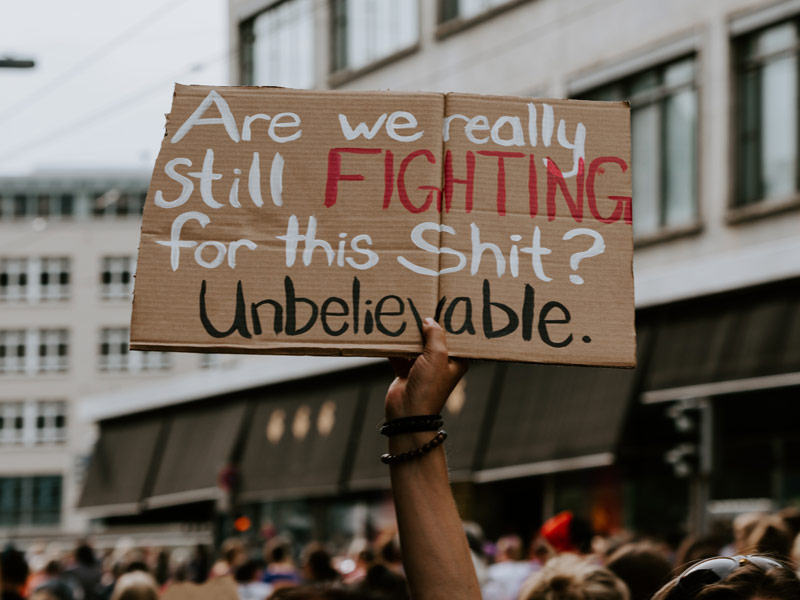 Are we really
still FIGHTING
for this Shit?
Unbelievable.